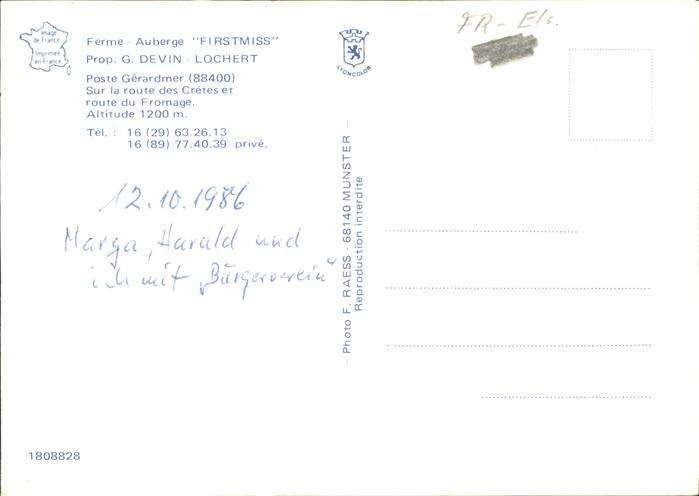 Image
de France
Imprimée
en France
Ferme - Auberge "FIRSTMISS"
Prop. G. DEVIN - LOCHERT
Poste Gérardmer (88400)
Sur la route des Crêtes et
route du Fromage.
Altitude 1200 m.
Tél. : 16 (29) 63.26.13
16 (89) 77.40.39 privé.
12.10.1986
Marga, Harald und
ich mit „Bürgerverein"
1808828
LYONCOLOR
— Photo F. RAESS - 68140 MUNSTER —
Reproduction interdite
FR - Els.